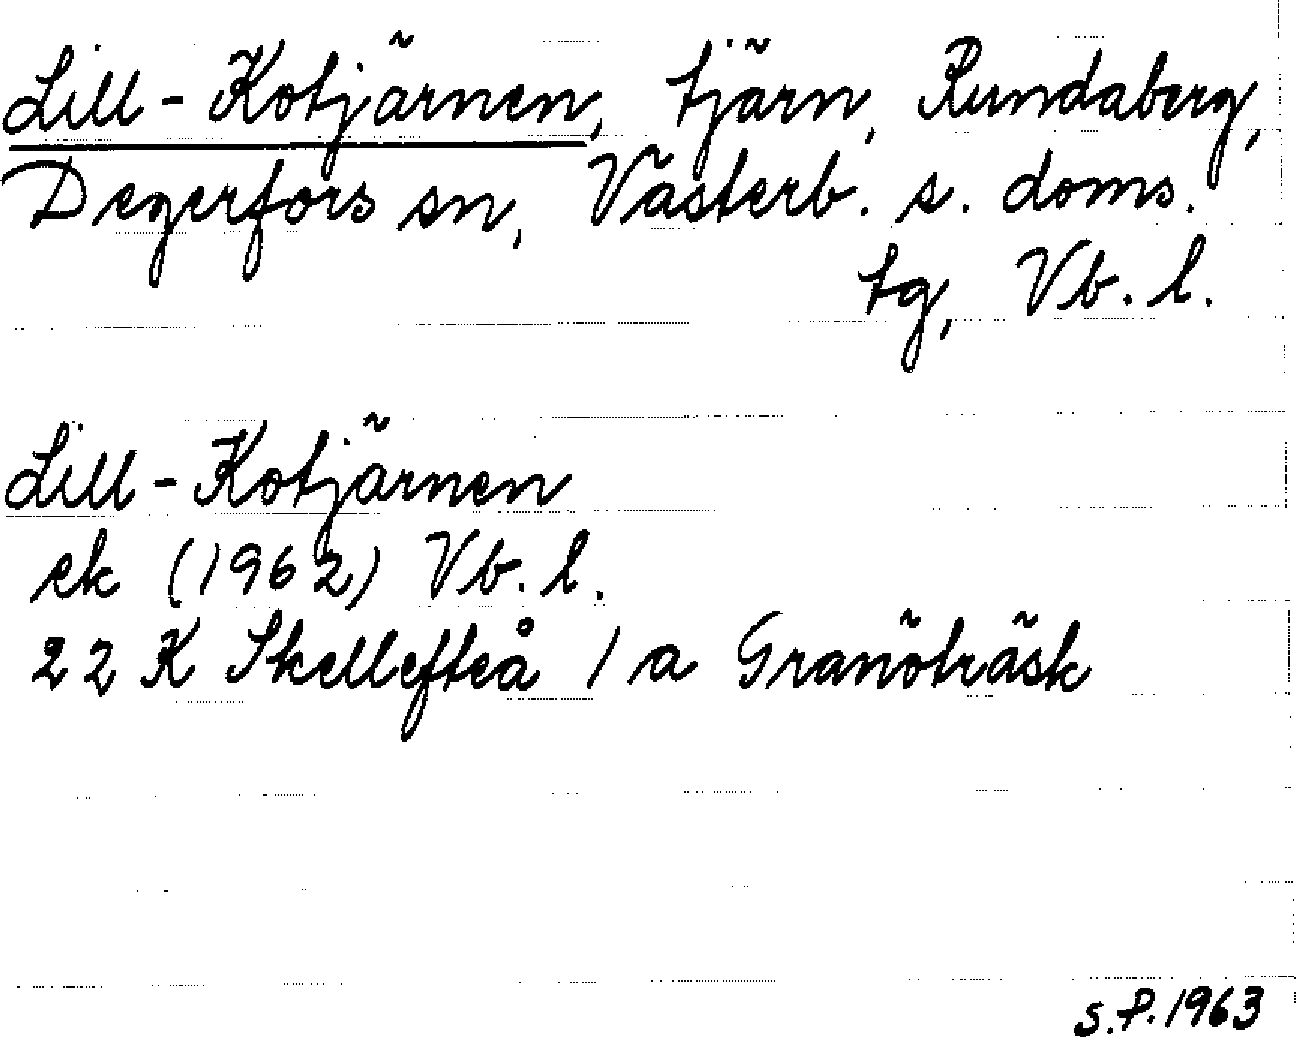 Lill-Kotjärnen, tjärn, Rundaberg,
Degerfors sn, Västerb. s. doms.
tg, Vb. l.
Lill-Kotjärnen
ek (1962) Vb. l.
22 K Skellefteå / a Granöträsk
S.P. 1963